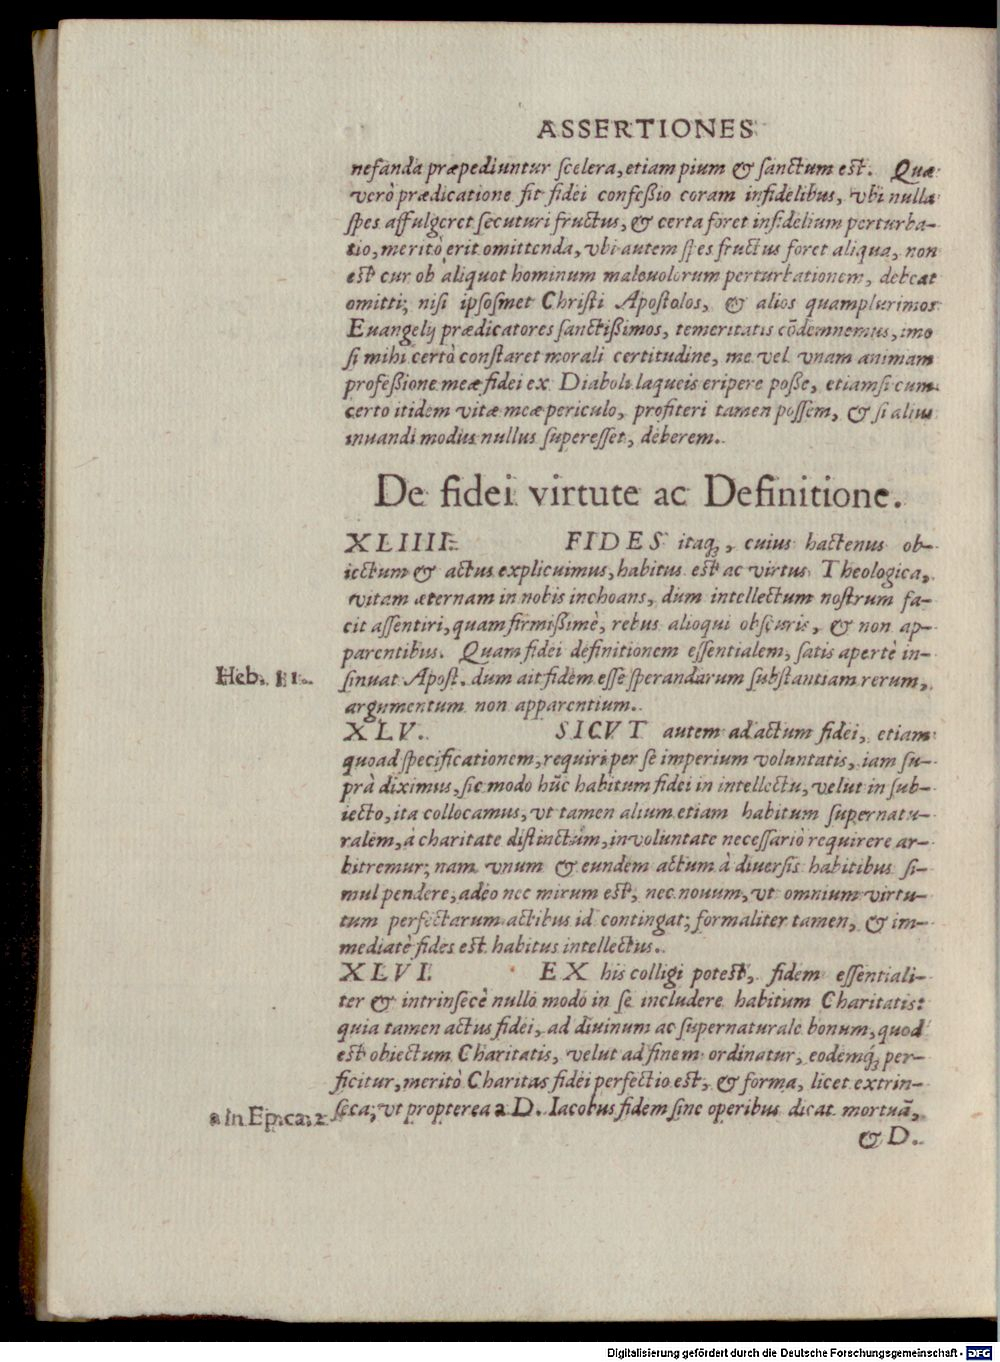 ASSERTIONES
nefanda præpediuntur scelera, etiam pium & sanctum est. Quæ
verò prædicatione fit fidei confeßio coram infidelibus, vbi nulla
spes affulgeret secuturi fructus, & certa foret infidelium perturba-
tio, meritò erit omittenda, vbi autem spes fructus foret aliqua, non
est cur ob aliquot hominum maleuolorum perturbationem, debeat
omitti; nisi ipsosmet Christi Apostolos, & alios quamplurimos
Euangelij prædicatores sanctißimos, temeritatis cõdemnemus, imo
si mihi certò constaret morali certitudine, me vel vnam animam
profeßione meæ fidei ex Diaboli laqueis eripere poße, etiamsi cum
certo itidem vitæ meæ periculo, profiteri tamen possem, & si alius
iuuandi modus nullus superesset, deberem.
De fidei virtute ac Definitione.
XLIIII. FIDES itaq;, cuius hactenus ob-
iectum & actus explicuimus, habitus est ac virtus Theologica,
vitam æternam in nobis inchoans, dum intellectum nostrum fa-
cit assentiri, quam firmißimè, rebus alioqui obscuris, & non ap-
parentibus. Quam fidei definitionem essentialem, satis apertè in-
Heb. 11. sinuat Apost. dum ait fidem esse sperandarum substantiam rerum,
argumentum non apparentium.
XLV. SICVT autem ad actum fidei, etiam
quoad specificationem, requiri per se imperium voluntatis, iam su-
prà diximus, sic modo hũc habitum fidei in intellectu, velut in sub-
iecto, ita collocamus, vt tamen alium etiam habitum supernatu-
ralem, à charitate distinctum, in voluntate necessariò requirere ar-
bitremur; nam vnum & eundem actum à diuersis habitibus si-
mul pendere, adeo nec mirum est, nec nouum, vt omnium virtu-
tum perfectarum actibus id contingat; formaliter tamen, & im-
mediatè fides est habitus intellectus.
XLVI. EX his colligi potest, fidem essentiali-
ter & intrinsecè nullo modo in se includere habitum Charitatis:
quia tamen actus fidei, ad diuinum ac supernaturale bonum, quod
est obiectum Charitatis, velut ad finem ordinatur, eodemq́; per-
ficitur, meritò Charitas fidei perfectio est, & forma, licet extrin-
a in Ep. ca. 2 seca; vt propterea a D. Iacobus fidem sine operibus dicat mortuã,
& D.
Digitalisierung gefördert durch die Deutsche Forschungsgemeinschaft - DFG